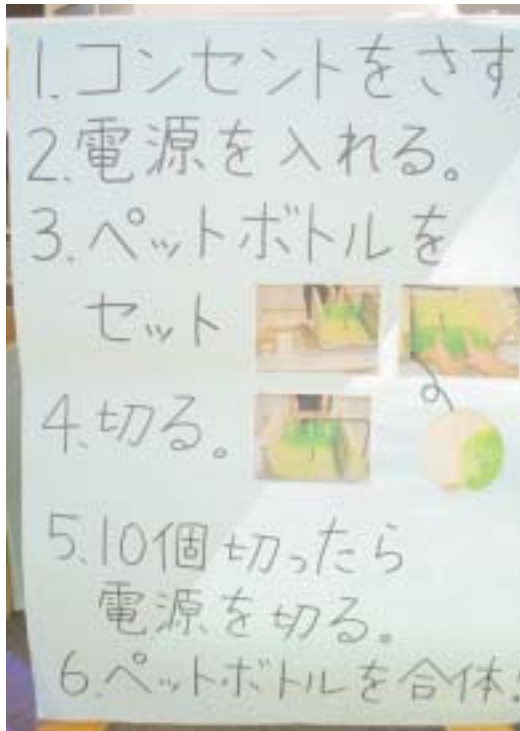 1.コンセントをさす.
2.電源を入れる。
3.ペットボトルを
セット
4.切る。
5.10個切ったら
電源を切る。
6.ペットボトルを合体!